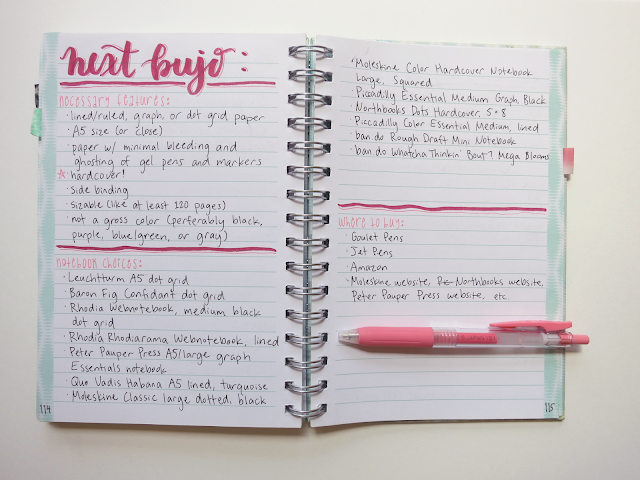 next bujo:
necessary features:
· lined/ruled, graph, or dot grid paper
· A5 size (or close)
· paper w/ minimal bleeding and
ghosting of gel pens and markers
☆ hardcover!
· side binding
· sizable (like at least 120 pages)
· not a gross color (perferably black,
purple, blue/green, or gray)
notebook choices:
· Leuchtturm A5 dot grid
· Baron Fig Confidant dot grid
· Rhodia Webnotebook, medium black
dot grid
· Rhodia Rhodiarama Webnotebook, lined
· Peter Pauper Press A5/large graph
Essentials notebook
· Quo Vadis Habana A5 lined, turquoise
· Moleskine Classic large dotted, black
114
· Moleskine Color Hardcover Notebook
Large, Squared
· Piccadilly Essential Medium Graph Black
· Northbooks Dots Hardcover 5×8
· Piccadilly Color Essential Medium, lined
· ban.do Rough Draft Mini Notebook
· ban.do Whatcha Thinkin' Bout? Mega Blooms
where to buy:
· Goulet Pens
· Jet Pens
· Amazon
· Moleskine website, Northbooks website,
Peter Pauper Press website, etc.
115